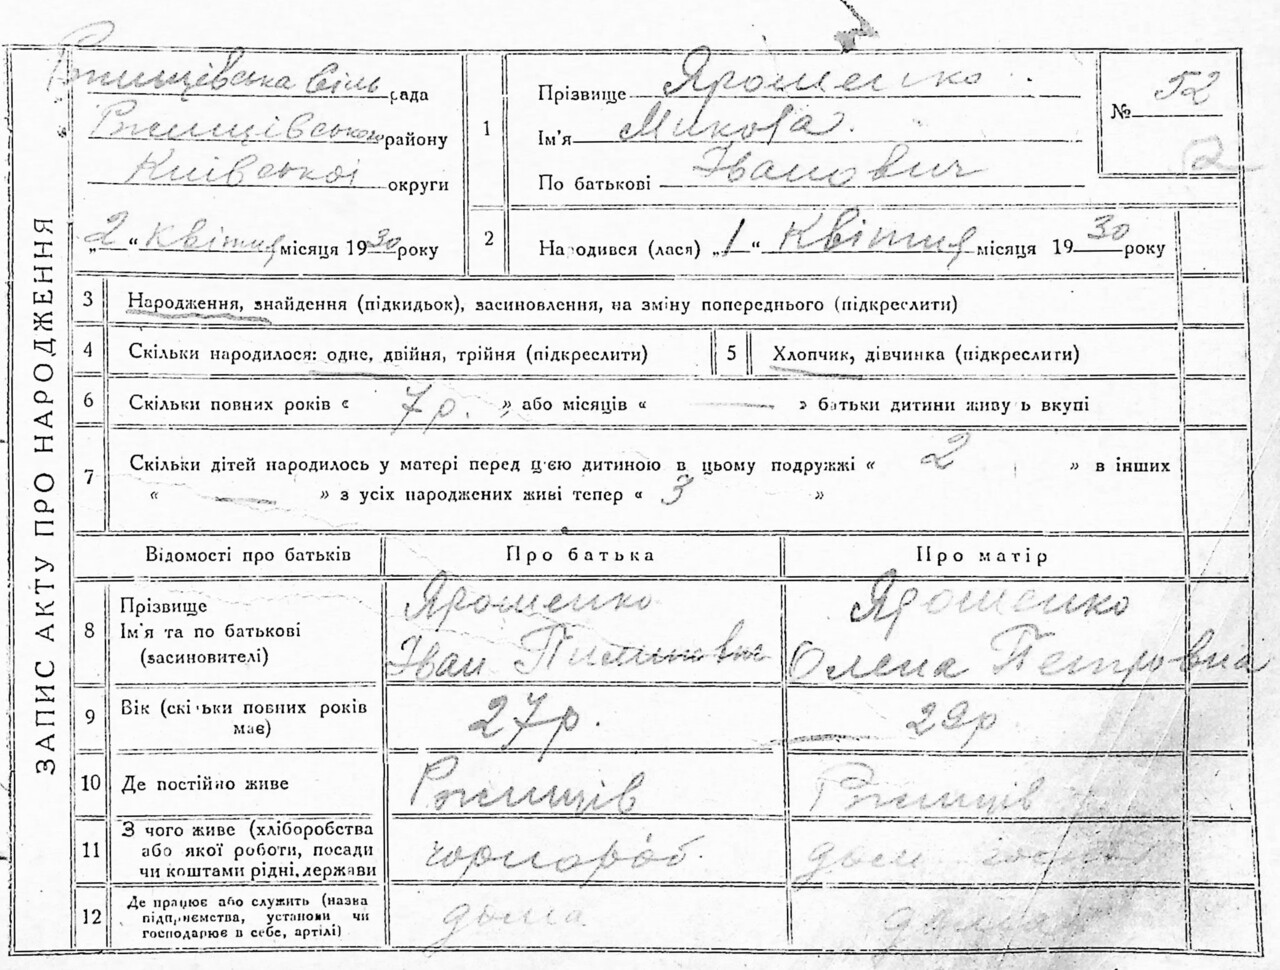 ЗАПИС АКТУ ПРО НАРОДЖЕННЯ
Ржищівська сіль рада
Ржищівського району
Київської округи
„2“ квітня місяця 1930 року
1
Прізвище Ярошенко
Ім'я Микола
По батькові Іванович
№ 52
2
2
Народився (лася) „1“ Квітня місяця 1930 року
3 Народження, знайдення (підкидьок), засиновлення, на зміну попереднього (підкреслити)
4 Скільки народилося: одне, двійня, трійня (підкреслити)
5 Хлопчик, дівчинка (підкреслити)
6 Скільки повних років « 7 р. » або місяців « — » батьки дитини живуть вкупі
7 Скільки дітей народилось у матері перед цією дитиною в цьому подружжі « 2 » в інших
« — » з усіх народжених живі тепер « 3 »
Відомості про батьків Про батька Про матір
8 Прізвище
Ім'я та по батькові
(засиновителі)
Ярошенко
Іван
Ярошенко
Олена Петровна
9 Вік (скільки повних років
має)
27 р.
29 р
10 Де постійно живе Ржищів Ржищів
11 З чого живе (хліборобства
або якої роботи, посади
чи коштами рідні, держави
чорнороб. дом
12 Де працює або служить (назва
підприємства, установи чи
господарює в себе, артілі)
дома дома